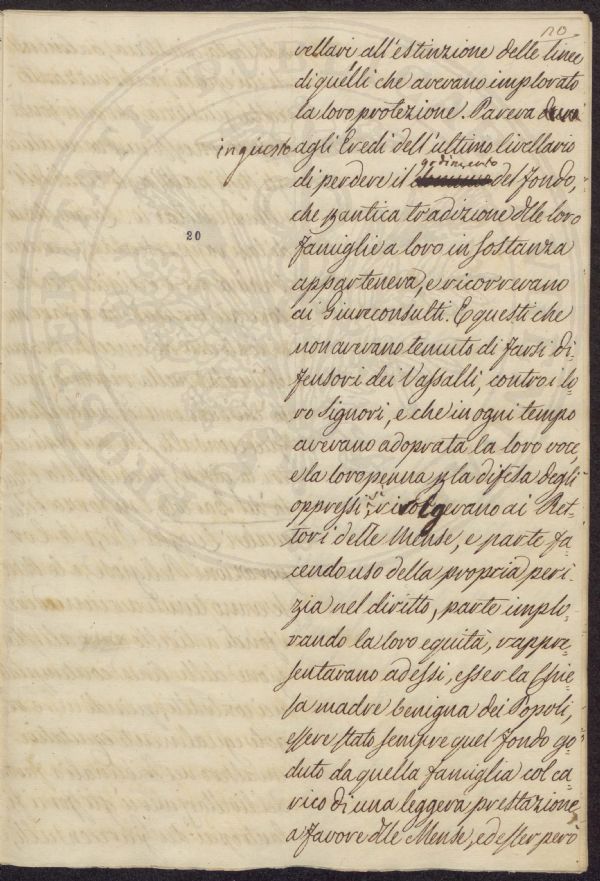 110
vellari all'estinzione delle linee
di quelli che avevano implorato
la loro protezione. Pareva duro
ingiusto agli Eredi dell'ultimo livellario
godimento
di perdere il dominio del fondo,
che p antica tradizione dlle loro
20
famiglie a loro in sostanza
apparteneva, e ricorrevano
ai Giureconsulti. E questi che
non avevano temuto di farsi di-
fensori dei Vassalli, contro i lo-
ro Signori, e che in ogni tempo
avevano adoprata la loro voce,
e la loro penna p la difesa degli
oppressi, si rivolgevano ai Ret-
tori delle Mense, e parte fa-
cendo uso della propria peri-
zia nel diritto, parte implo-
rando la loro equità, rappre-
sentavano ad essi, esser la Chie-
sa madre benigna dei Popoli,
essere stato sempre quel fondo go-
duto da quella famiglia col ca-
rico di una leggera prestazione
a favore dlle Mense, ed esser però